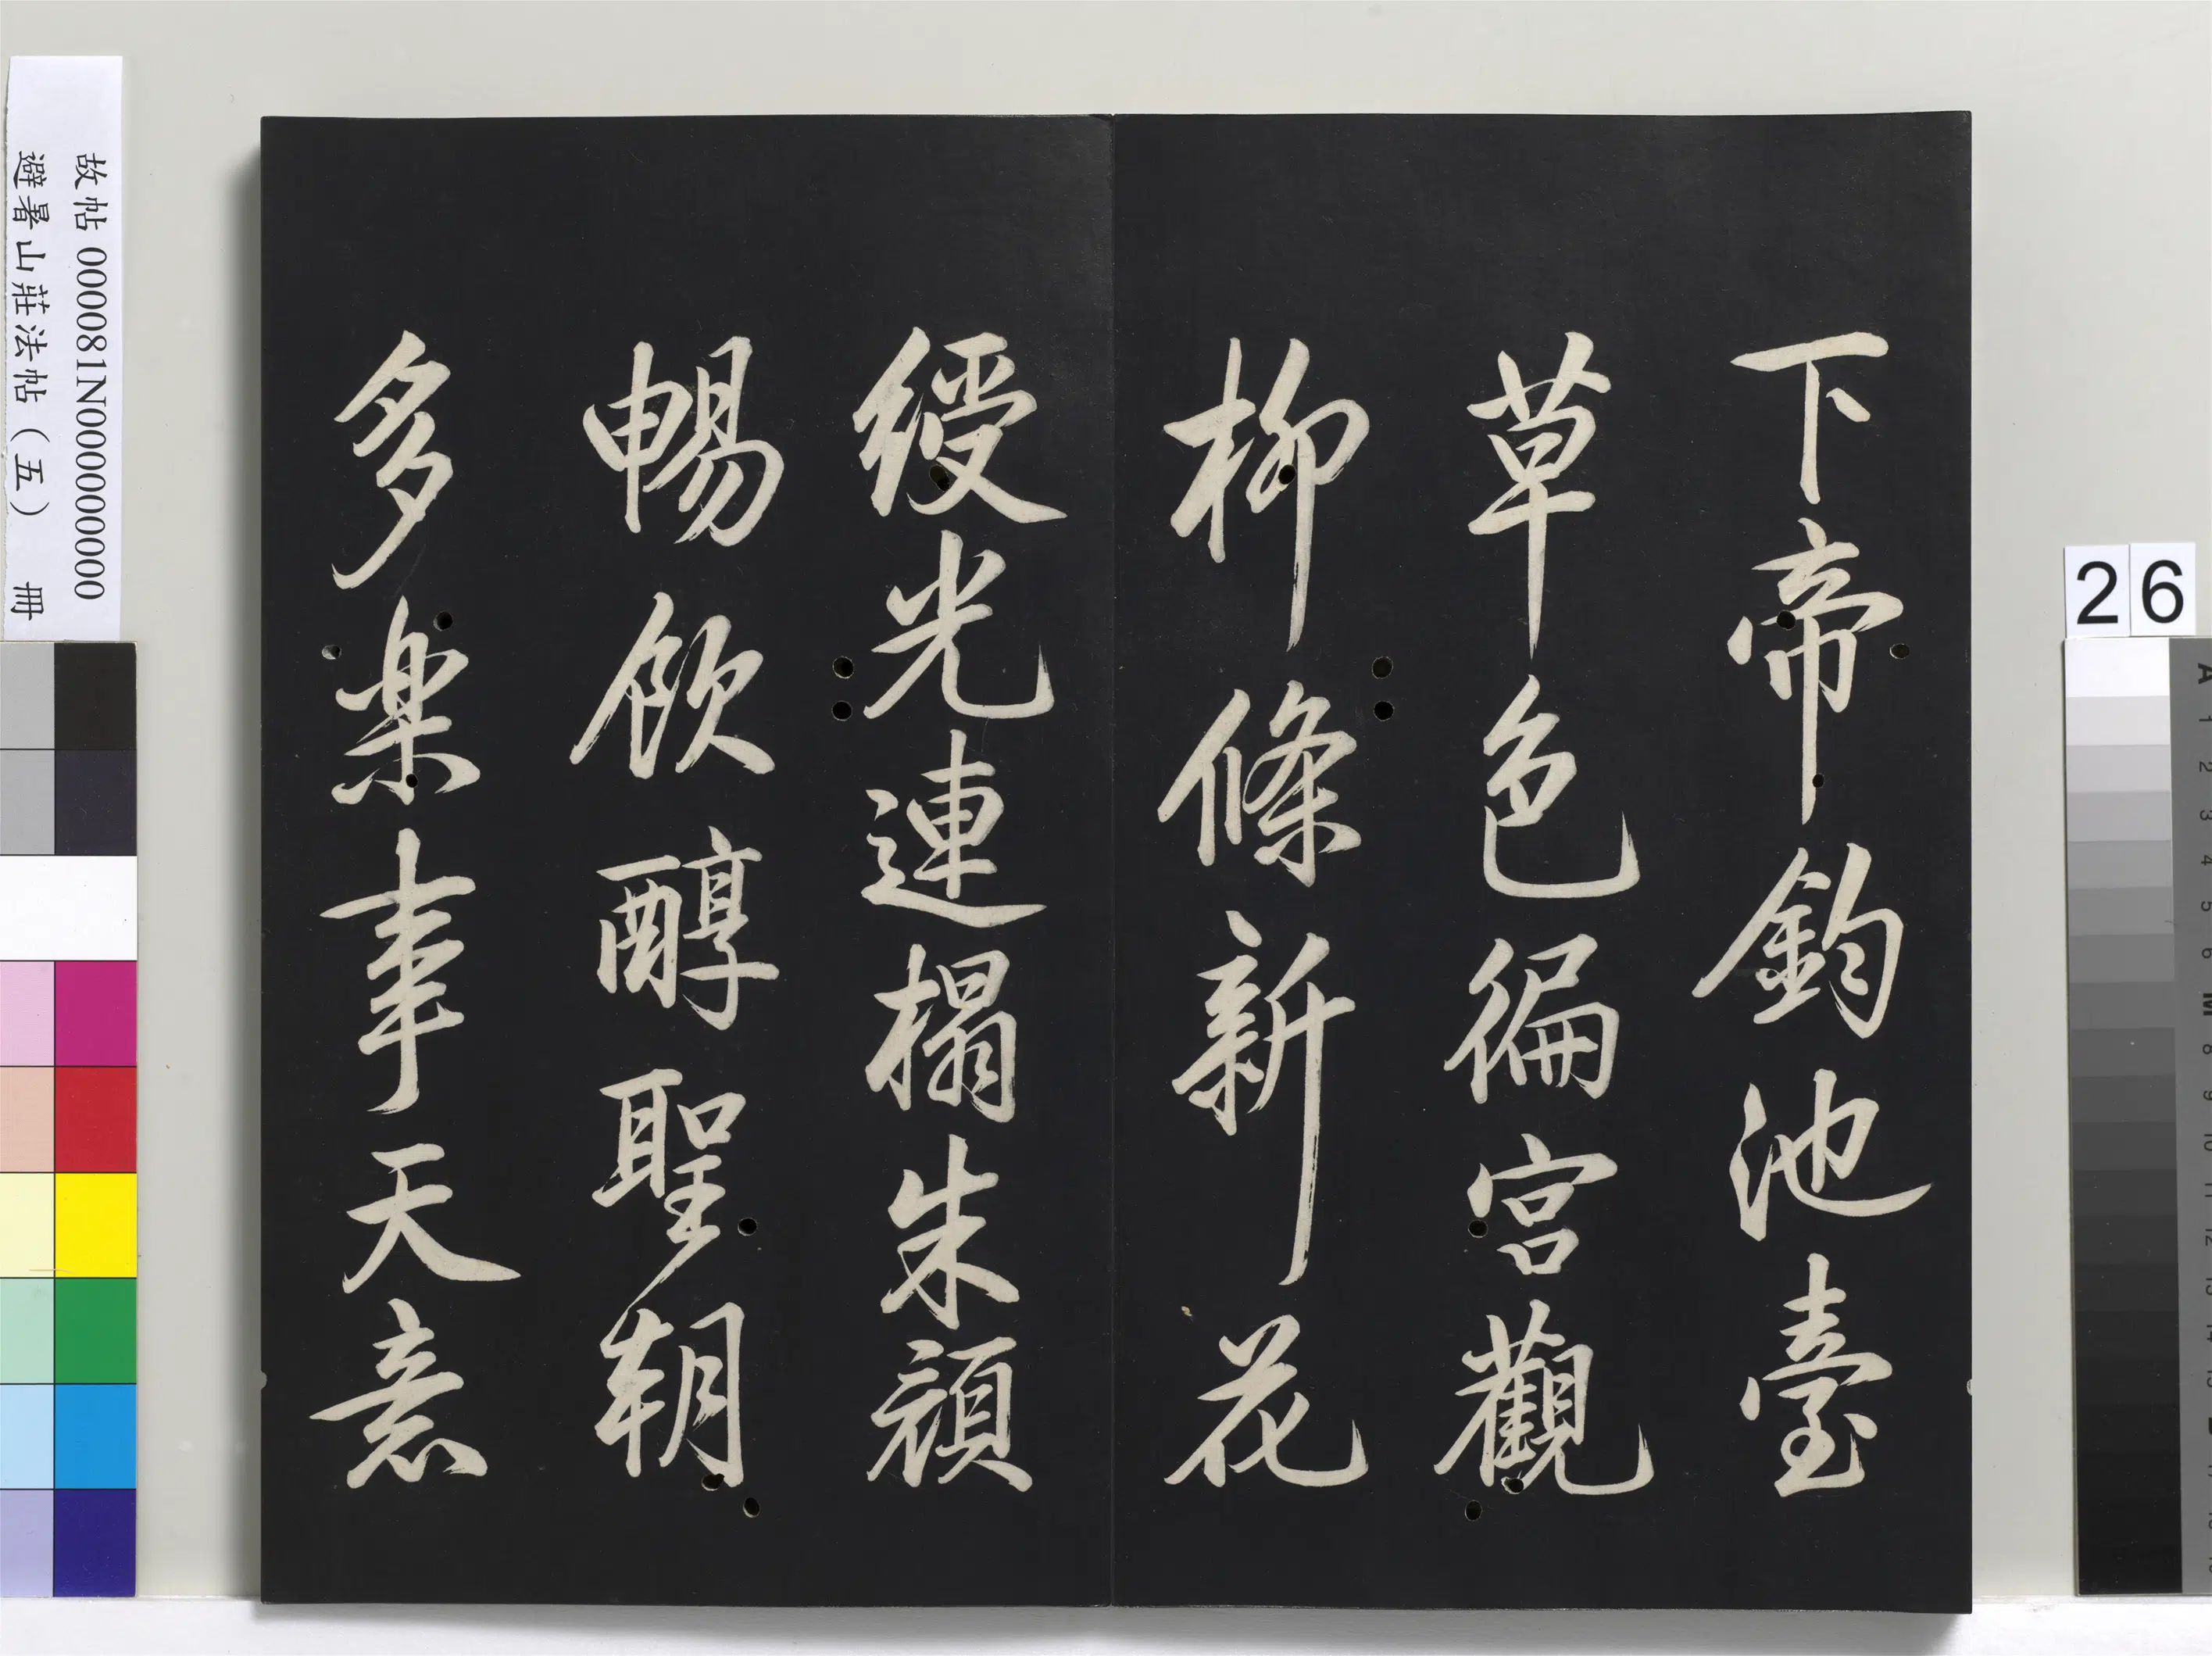 下帝鈞池臺
草色徧宮觀
柳條新花
綬光連榻朱顔
暢飲醇聖朝
多樂事天意
故帖 000081N000000000
避暑山莊法帖（五） 冊
26